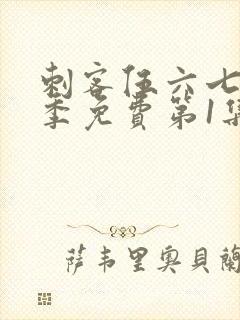 刺客伍六七
季免费第1集
萨韦里奥贝蘭